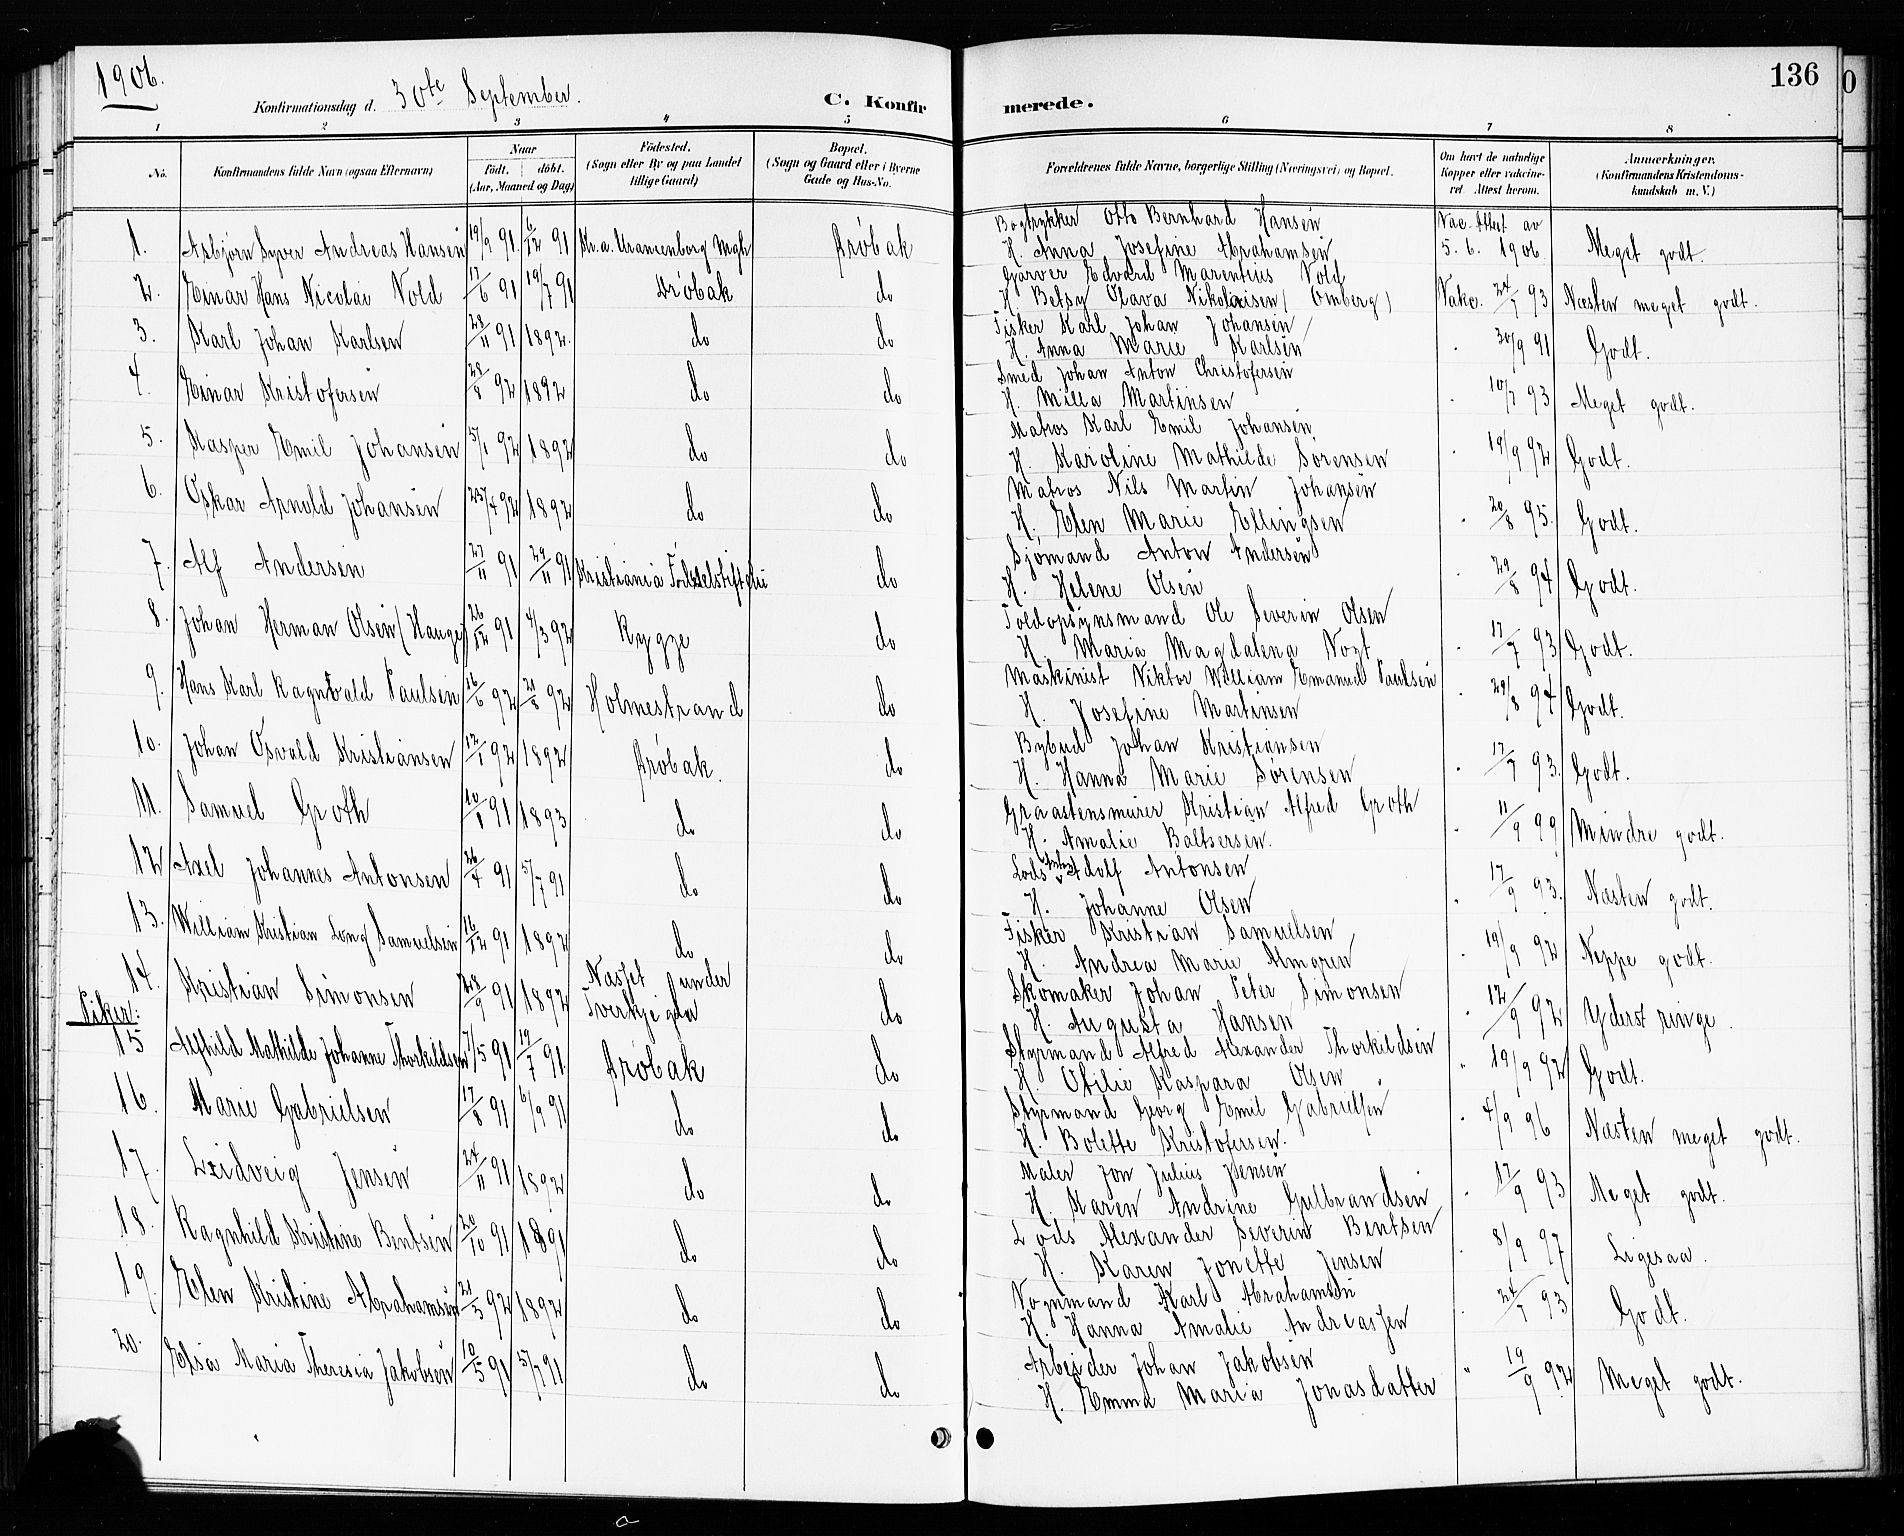 1906.
136
Konfirmationsdag d. 30te September.
C. Konfirmerede.
1 2 3 4 5 6 7 8
No.
Konfirmandens fulde Navn (ogsaa Efternavn)
Naar
født. døbt.
(Aar, Maaned og Dag)
Fødested.
(Sogn eller By og paa Landet
tillige Gaard)
Bopæl.
(Sogn og Gaard eller i Byerne
Gade og Hus-No.
Forældrenes fulde Navne, borgerlige Stilling (Næringsvei) og Bopæl.
Om havt de naturlige
Kopper eller vakcine-
ret. Attest herom.
Anmærkninger.
(Konfirmandens Kristendoms-
kundskab m. V.)
1. Asbjørn Syver Andreas Hansen 19/9 91 6/12 91 Kr.a. Uranienborg Mgh Drøbak Bogtrykker Otto Bernhard Hansen Vac. Attest av
H. Anna Josefine Abrahamsen 5. 6. 1906 Meget godt.
2. Einar Hans Nicolai Vold 17/6 91 19/7 91 Drøbak do Garver Edvard Marentius Vold
H. Betsy Olava Nikolaisen (Omberg) Vakc. 24/7 93 Næsten meget godt.
3. Karl Johan Karlsen 28/11 91 1892. do do Fisker Karl Johan Johansen
H. Anna Marie Karlsen " 30/9 91 Godt.
4. Einar Kristofersen 28/8 92 1892 do do Smed Johan Anton Christofersen
H. Milla Martinsen " 10/7 93 Meget godt.
5. Kasper Emil Johansen 5/1 92 1892 do do Matros Karl Emil Johansen
H. Karoline Mathilde Sørensen " 19/9 92 Godt.
6. Oskar Arnold Johansen 25/4 92 1892 do do Matros Nils Martin Johansen
H. Elen Marie Ellingsen " 20/8 95. Godt.
7. Alf Andersen 27/11 91 29/11 91 Kristiania Fødselsstiftelse do Sjømand Anton Andersen
H. Helene Olsen " 29/8 94 Godt.
8. Johan Herman Olsen (Hauge) 26/12 91 4/3 92 Rygge do Toldopsynsmand Ole Severin Olsen
H. Maria Magdalena Vogt " 17/7 93 Godt.
9. Hans Karl Ragnvald Paulsen 16/6 92 21/8 92 Holmestrand do Maskinist Viktor William Emanuel Paulsen
H. Josefine Martinsen " 29/8 94 Godt.
10. Johan Osvald Kristiansen 12/1 92 1892 Drøbak. do Bybud Johan Kristiansen
H. Hanna Marie Sørensen " 17/7 93. Godt.
11. Samuel Groth 10/1 91 1893 do do Graastensmurer Kristian Alfred Groth
H. Amalie Baltsersen. " 11/9 99 Mindre godt.
12 Axel Johannes Antonsen 26/4 91 5/7 91 do do Lods Adolf Antonsen
H. Johanne Olsen " 17/9 93. Næsten godt.
13. William Kristian Long Samuelsen 16/12 91 1892 do do Fisker Kristian Samuelsen
H. Andrea Marie Almgren " 19/9 92 Neppe godt.
14. Kristian Simonsen 28/9 91 1892 Næsset under
do Skomaker Johan Peter Simonsen
H. Augusta Hansen " 12/9 92 Yderst ringe.
Piker:
15 Alfhild Mathilde Johanne Thorkildsen 7/5 91 19/7 91 Drøbak do Styrmand Alfred Alexander Thorkildsen
H. Otilie Kaspara Olsen " 19/9 92 Godt.
16. Marie Gabrielsen 17/8 91 6/9 91 do do Styrmand Georg Emil Gabrielsen
H. Bolette Kristofersen. " 4/9 96 Næsten meget godt.
17. Leidveig Jensen 24/11 91 1892 do do Maler Jon Julius Jensen
H. Karen Andrine Gulbrandsen " 17/9 93 Meget godt.
18. Ragnhild Kristine Bentsen 20/10 91 1891 do do Lods Alexander Severin Bentsen
H. Karen Jonette Jensen " 8/9 97 Ligesaa.
19. Elen Kristine Abrahamsen 21/5 92 1892 do do Vognmand Karl Abrahamsen
H. Hanna Amalie Andreassen " 24/7 93 Godt.
20. Elsa Maria Theresia Jakobsen 10/5 91 5/7 91 do do Arbeider Johan Jakobsen
H. Emma Maria Jonasdatter " 19/9 92 Meget godt.